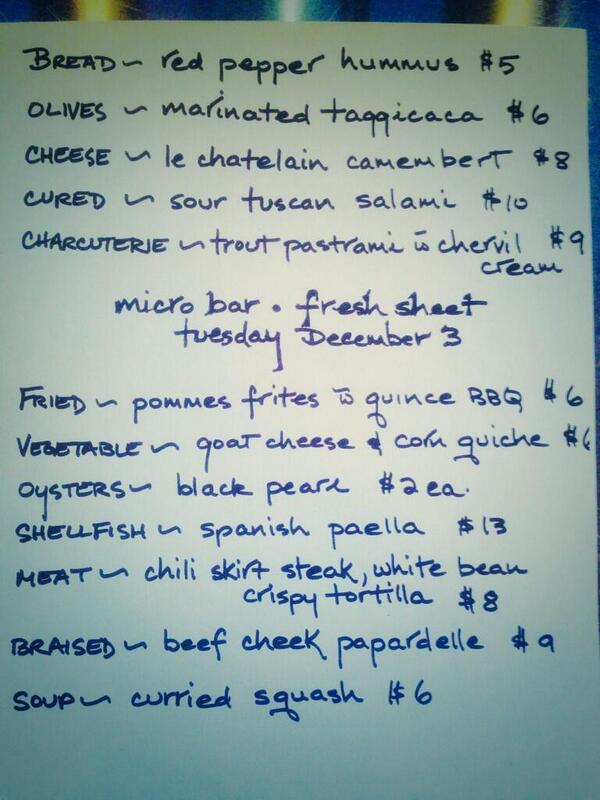 BREAD ~ red pepper hummus $5
OLIVES ~ marinated taggicaca $6
CHEESE ~ le chatelain camembert $8
CURED ~ sour tuscan salami $10
CHARCUTERIE ~ trout pastrami w chervil $9
cream
micro bar • fresh sheet
tuesday December 3
FRIED ~ pommes frites w quince BBQ $6
VEGETABLE ~ goat cheese & corn quiche $6
OYSTERS ~ black pearl $2 ea.
SHELLFISH ~ spanish paella $13
MEAT ~ chili skirt steak, white bean
crispy tortilla $8
BRAISED ~ beef cheek papardelle $9
SOUP ~ curried squash $6